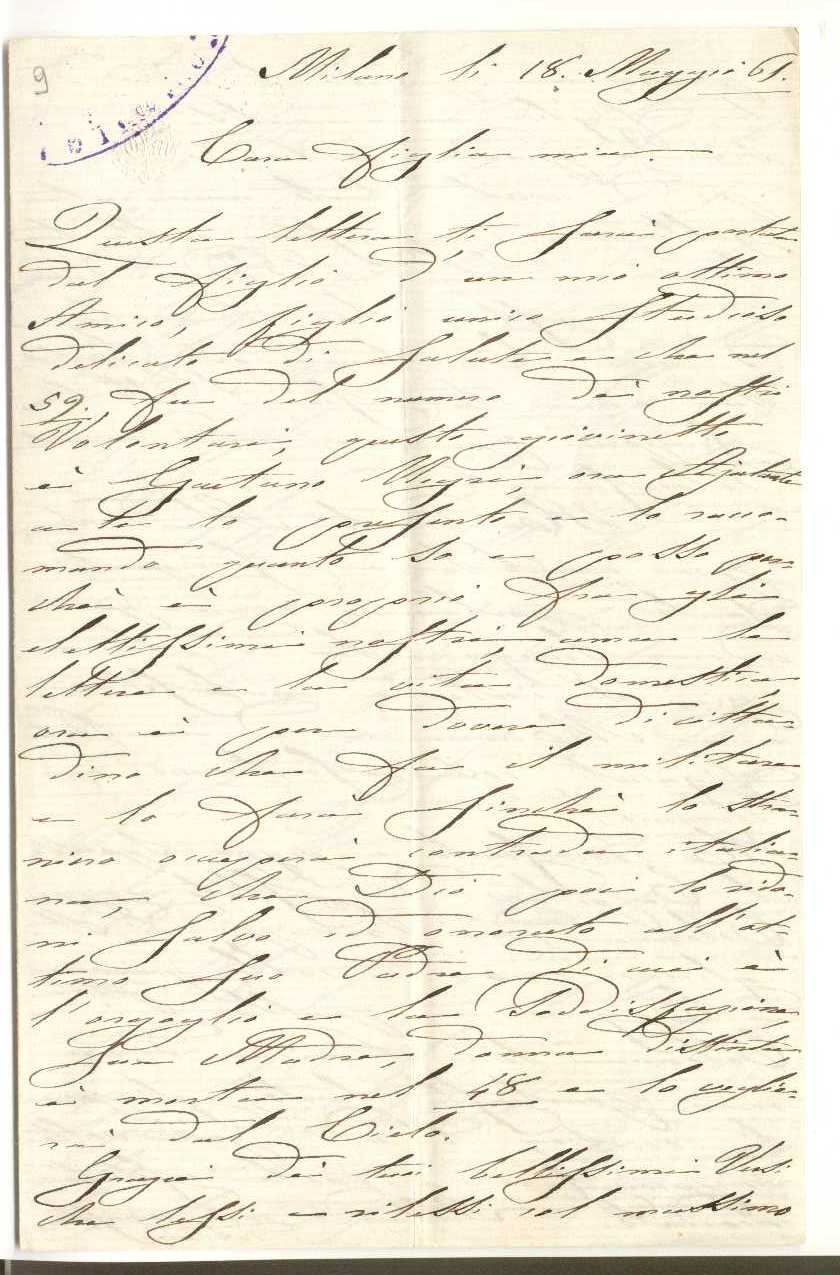 9
Milano li 18. Maggio 61.
Cara figlia mia.
Questa lettera ti sarà portata
dal figlio d'un mio ottimo
Amico, figlio unico studioso
delicato di salute e che nel
59. fu del numero dè nostri
Volontari, questo giovinetto
è Gaetano Negri, ora Ajutante
a te lo presento e lo racco-
mando quanto so e posso per-
chè è proprio fra gli
elettissimi nostri, ama le
lettere e la vita domestica,
ora è per dovere di citta-
dino che fa il militare
e lo farà finchè lo stra-
niero occuperà contrade italia-
ne, che Dio poi lo rido-
ni salvo ed onorato all'ot-
timo suo Padre di cui è
l'orgoglio e la soddisfazione,
Sua Madre, donna distinta,
è morta nel 48 e lo veglie-
rà dal Cielo.
Grazie dè tuoi bellissimi Versi
che lessi e rilessi col massimo